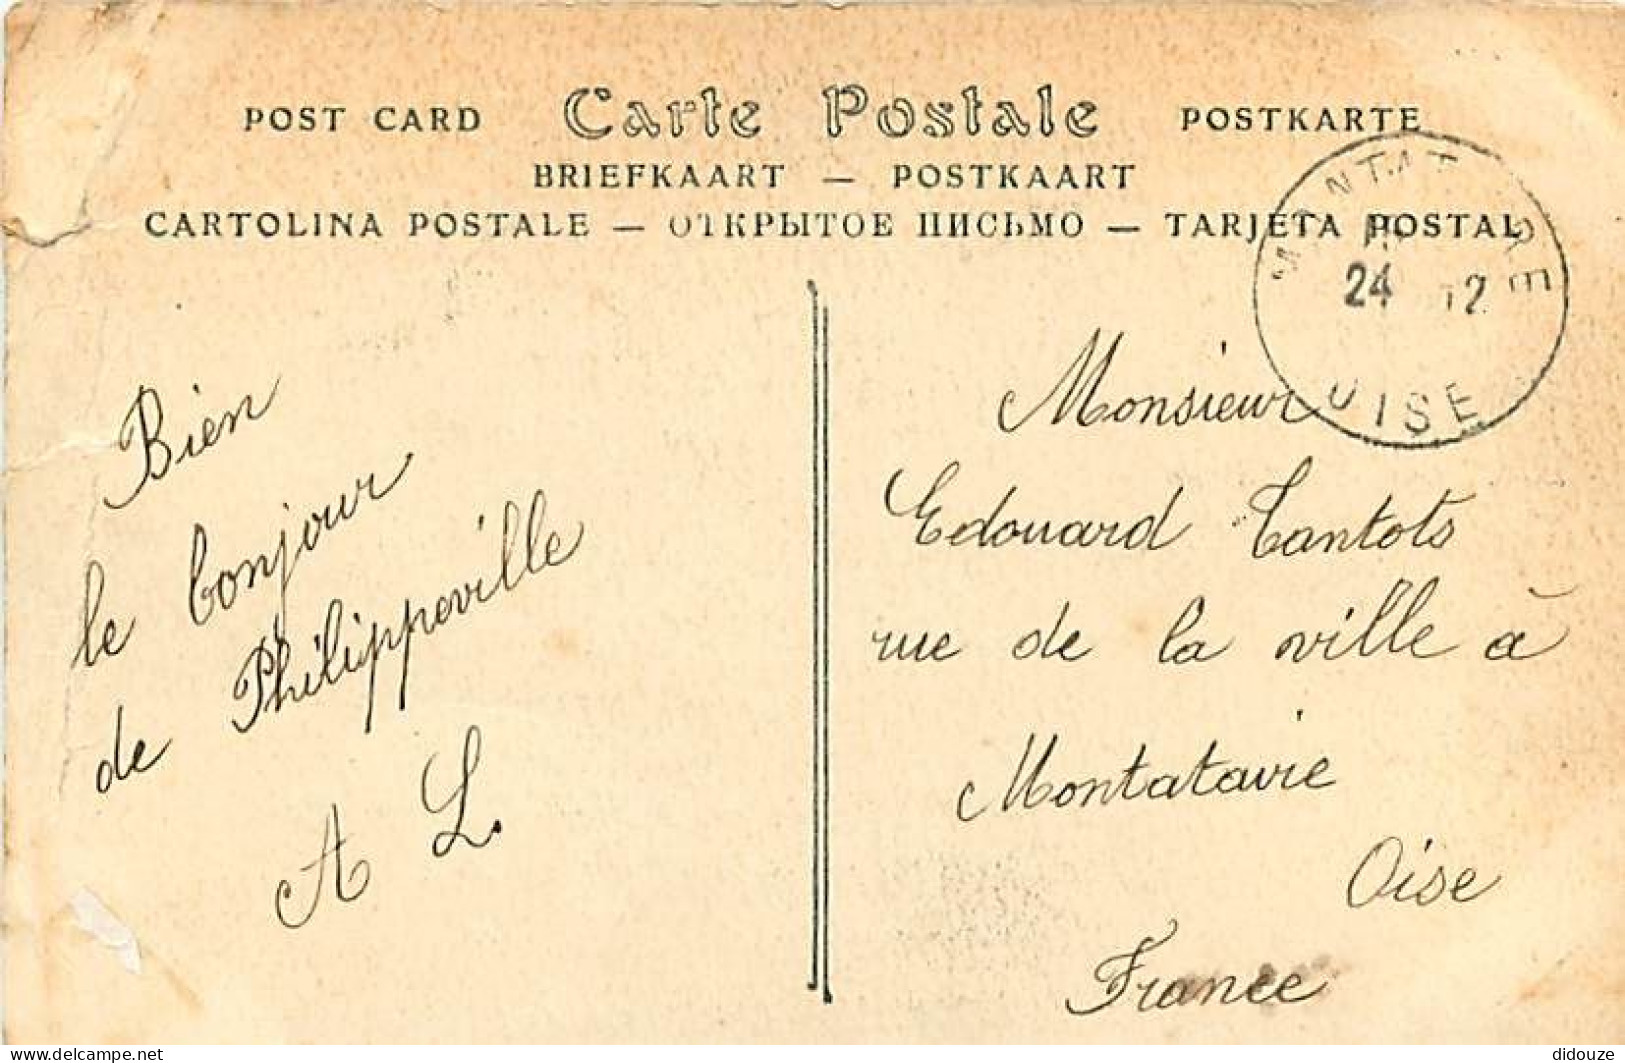 POST CARD Carte Postale POSTKARTE
BRIEFKAART — POSTKAART
CARTOLINA POSTALE — ОТКРЫТОЕ ПИСЬМО — TARJETA POSTAL
24 12
OISE
Bien
le bonjour
de Philippeville
A L.
Monsieur
Edouard Tantots
rue de la ville à
Montatavie
Oise
France
www.delcampe.net
didouze